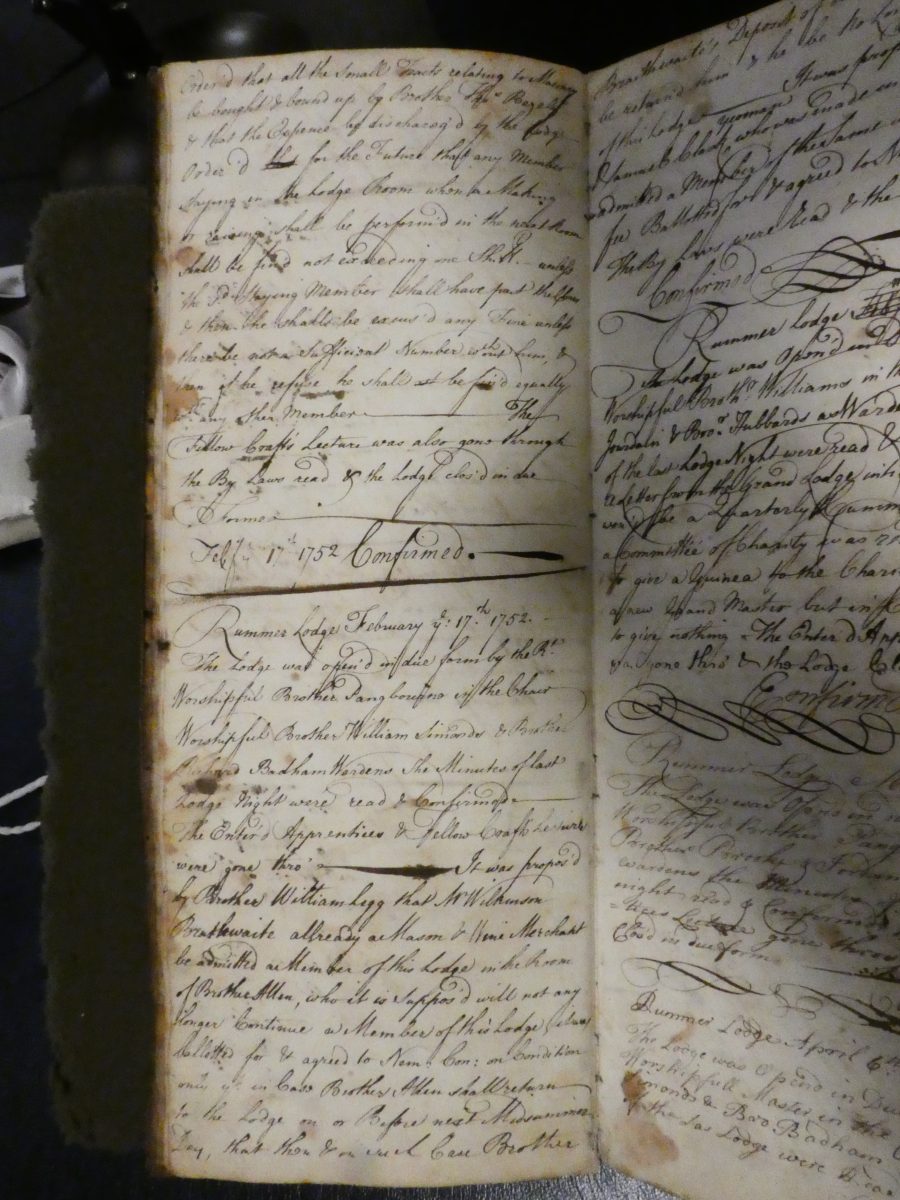 Order'd that all the Small Tracts relating to Masonry
be bought & bound up by Brother Thos
& that the Expence be discharg'd by the Lodge
Order'd for the Future that any Member
Staying in the Lodge Room when a Making
or raising shall be perform'd in the next Room
shall be fin'd not exceeding one Shill. unless
the Sd. Staying Member shall have past the
& then he shall be excus'd any Fine unless
there be not a Sufficient Number without him, &
then if he refuse he shall be fin'd equally
wth. any other Member The
Fellow Crafts Lecture was also gone through
the By Laws read & the Lodge clos'd in due
Forme
Feby 17th 1752 Confirmed.
Rummer Lodge February ye. 17th. 1752.
The Lodge was open'd in due form by the Rt.
Worshipful Brother Pangbourne in the Chair
Worshipful Brother William Simonds & Brother
Richard Badham Wardens The Minutes of last
Lodge Night were read & Confirmed
The Enter'd Apprentices & Fellow Crafts Lecture
were gone thro' It was propos'd
by Brother William Legg that Mr Wilkinson
Brathwaite allready a Mason & Wine Merchant
be admitted a Member of this Lodge in the Room
of Brother Allen, who it is Suppos'd will not any
longer Continue a Member of this Lodge,
ballotted for & agreed to Nem: Con: on Condition
only yt. in Case Brother Allen shall return
to the Lodge on or Before next Midsummer
Day, that then & in such Case Brother
Braithwaite's Deposit of
be return'd him & he be no
of this Lodge It was prop
yeoman
& Samuel Clark, who was made in
admitted a Member of the same
for Ballotted for & agreed to N
The By Laws were Read & the
Confirmed
Rummer Lodge
The Lodge was Open'd in
Worshipful Brothr. Williams in th
Jourdain & Bror. Hubbards as Warde
of the last Lodge Night were read &
a Letter from the Grand Lodge inti
wou'd be a Quarterly Commu
a Committee of Charity was re
to give a Guinea to the Chari
a new Grand Master but in
to give nothing The Enter'd App
was gone thro' & the Lodge Cl
Confirm
Rummer Lodge M
The Lodge was Open'd in
Worshipful Brother Pang
Brother &
Wardens the Minutes of
night read & Confirmed
tices Lecture gone throu
Clos'd in due form
Rummer Lodge April 6th
The Lodge was Open'd in Due
Worshipfull Master in the
monds & Bro Badham
of the Las Lodge were